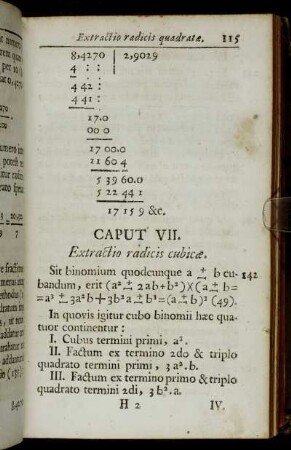 Extractio radicis quadratæ. 115
8,4270 | 2,9029
4 : :
4 42 :
4 41 :
17.0
00 0
17 00.0
11 60 4
5 39 60.0
5 22 44 1
17 15 9 &c.
CAPUT VII.
Extractio radicis cubicæ.
Sit binomium quodcunque a ± b cu- 142
bandum, erit (a² ± 2 a b + b²) × (a ± b =
= a³ ± 3a² b + 3 b² a ± b³ = (a ± b)³ (49).
In quovis igitur cubo binomii hæc qua-
tuor continentur :
I. Cubus termini primi, a³.
II. Factum ex termino 2do & triplo
quadrato termini primi, 3 a². b.
III. Factum ex termino primo & triplo
quadrato termini 2di, 3 b². a.
H 2 IV.